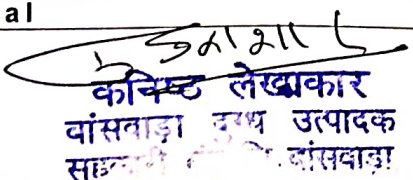 al
कनिष्ठ लेखाकार
बांसवाड़ा दुग्ध उत्पादक
बांसवाड़ा